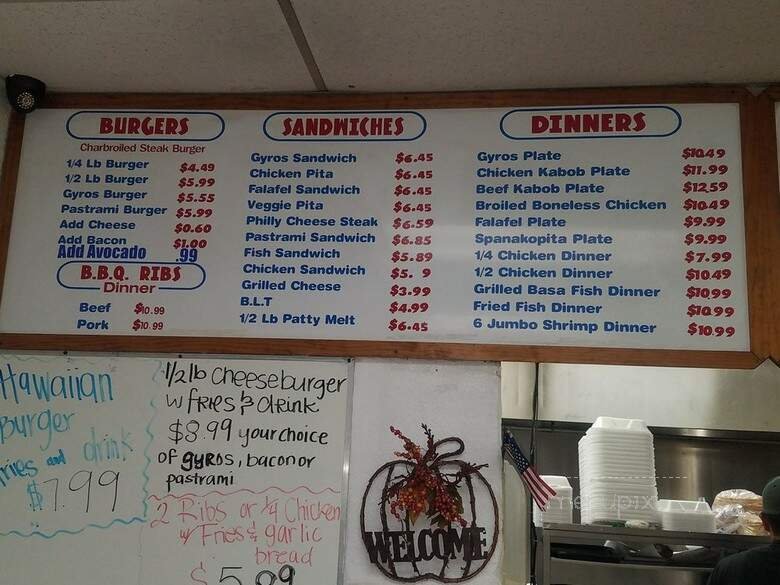 BURGERS
Charbroiled Steak Burger
1/4 Lb Burger $4.49
1/2 Lb Burger $5.99
Gyros Burger $5.55
Pastrami Burger $5.99
Add Cheese $0.60
Add Bacon $1.00
Add Avocado .99
B.B.Q. RIBS
Dinner
Beef $10.99
Pork $10.99
SANDWICHES
Gyros Sandwich $6.45
Chicken Pita $6.45
Falafel Sandwich $6.45
Veggie Pita $6.45
Philly Cheese Steak $6.59
Pastrami Sandwich $6.85
Fish Sandwich $5.89
Chicken Sandwich $5. 9
Grilled Cheese $3.99
B.L.T $4.99
1/2 Lb Patty Melt $6.45
DINNERS
Gyros Plate $10.49
Chicken Kabob Plate $11.99
Beef Kabob Plate $12.59
Broiled Boneless Chicken $10.49
Falafel Plate $9.99
Spanakopita Plate $9.99
1/4 Chicken Dinner $7.99
1/2 Chicken Dinner $10.49
Grilled Basa Fish Dinner $10.99
Fried Fish Dinner $10.99
6 Jumbo Shrimp Dinner $10.99
Hawaiian
Burger
fries and drink
$7.99
1/2lb cheeseburger
w fries & drink
$8.99 your choice
of gyros, bacon or
pastrami
2 Ribs or 1/4 Chicken
w/ Fries & garlic
bread
WELCOME